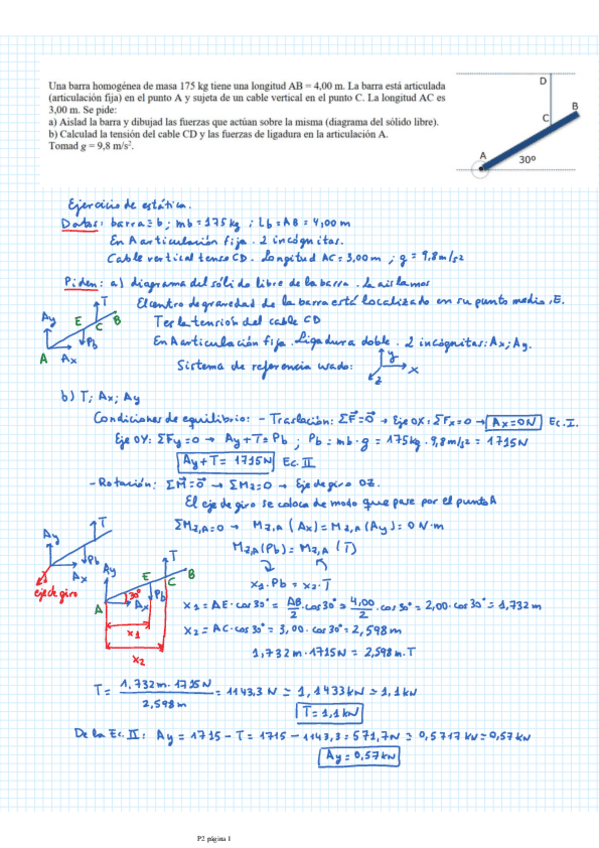 Una barra homogénea de masa 175 kg tiene una longitud AB = 4,00 m. La barra está articulada
(articulación fija) en el punto A y sujeta de un cable vertical en el punto C. La longitud AC es
3,00 m. Se pide:
a) Aislad la barra y dibujad las fuerzas que actúan sobre la misma (diagrama del sólido libre).
b) Calculad la tensión del cable CD y las fuerzas de ligadura en la articulación A.
Tomad g = 9,8 m/s².
D
B
C
A
30º
Ejercicio de estática.
Datos: barra ≡ b; mb = 175 kg; Lb = AB = 4,00 m
En A articulación fija. 2 incógnitas.
Cable vertical tenso CD. Longitud AC = 3,00 m; g = 9,8 m/s2
Piden: a) diagrama del sólido libre de la barra. La aislamos
El centro de gravedad de la barra está localizado en su punto medio, E.
T es la tensión del cable CD
En A articulación fija. Ligadura doble. 2 incógnitas: Ax; Ay.
Sistema de referencia usado:
y
x
z
Ay
E
T
C
B
Pb
A
Ax
b) T; Ax; Ay
Condiciones de equilibrio: - Traslación: ΣF⃗ = 0⃗ → Eje OX: ΣFx = 0 → Ax = 0 N Ec. I.
Eje OY: ΣFy = 0 → Ay + T = Pb; Pb = mb · g = 175 kg · 9,8 m/s2 = 1715 N
Ay + T = 1715 N Ec. II
- Rotación: ΣM⃗ = 0⃗ → ΣMz = 0 → Eje de giro OZ.
El eje de giro se coloca de modo que pase por el punto A
ΣMz,A = 0 → Mz,A (Ax) = Mz,A (Ay) = 0 N·m
Mz,A (Pb) = Mz,A (T)
x1 · Pb = x2 · T
Ay
T
Pb
Ax
eje de giro
Ay
E
T
C
B
Pb
30º
A
Ax
x1
x2
x1 = AE · cos 30º = AB/2 · cos 30º = 4,00/2 · cos 30º = 2,00 · cos 30º = 1,732 m
x2 = AC · cos 30º = 3,00 · cos 30º = 2,598 m
1,732 m · 1715 N = 2,598 m · T
T = 1,732 m · 1715 N / 2,598 m = 1143,3 N ≃ 1,1433 kN ≃ 1,1 kN
T = 1,1 kN
De la Ec. II: Ay = 1715 - T = 1715 - 1143,3 = 571,7 N ≃ 0,5717 kN = 0,57 kN
Ay = 0,57 kN
P2 página 1